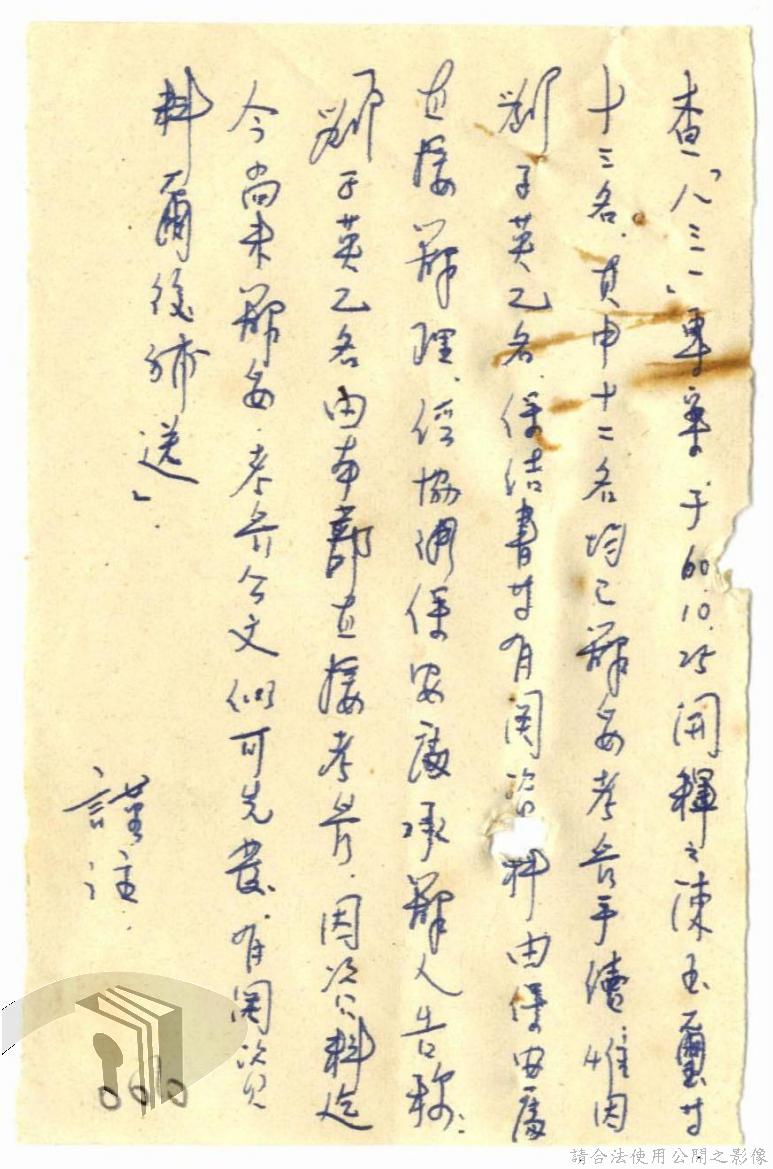 查「八三一」專案于60.10.25開釋之陳玉璽等
十三名，其中十二名均已辦妥考管手續，惟因
鄭子英乙名，保結書等有關資料由保安處
直接辦理，經協調保安處承辦人告稱：
「鄭子英乙名由本部直接考管，因資料迄
今尚未辦妥，考管公文似可先發，有關資
料爾後補送」。
謹註．
0010
請合法使用公開之影像